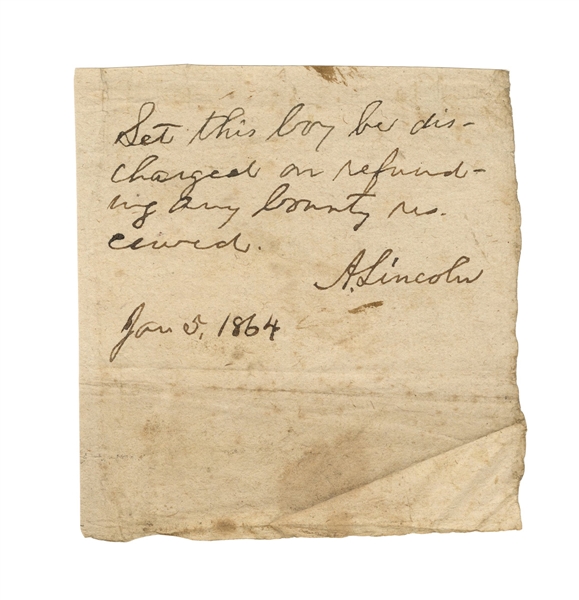 Let this boy be dis-
charged on refund-
ing any bounty re-
ceived.
A. Lincoln
Jan 5, 1864